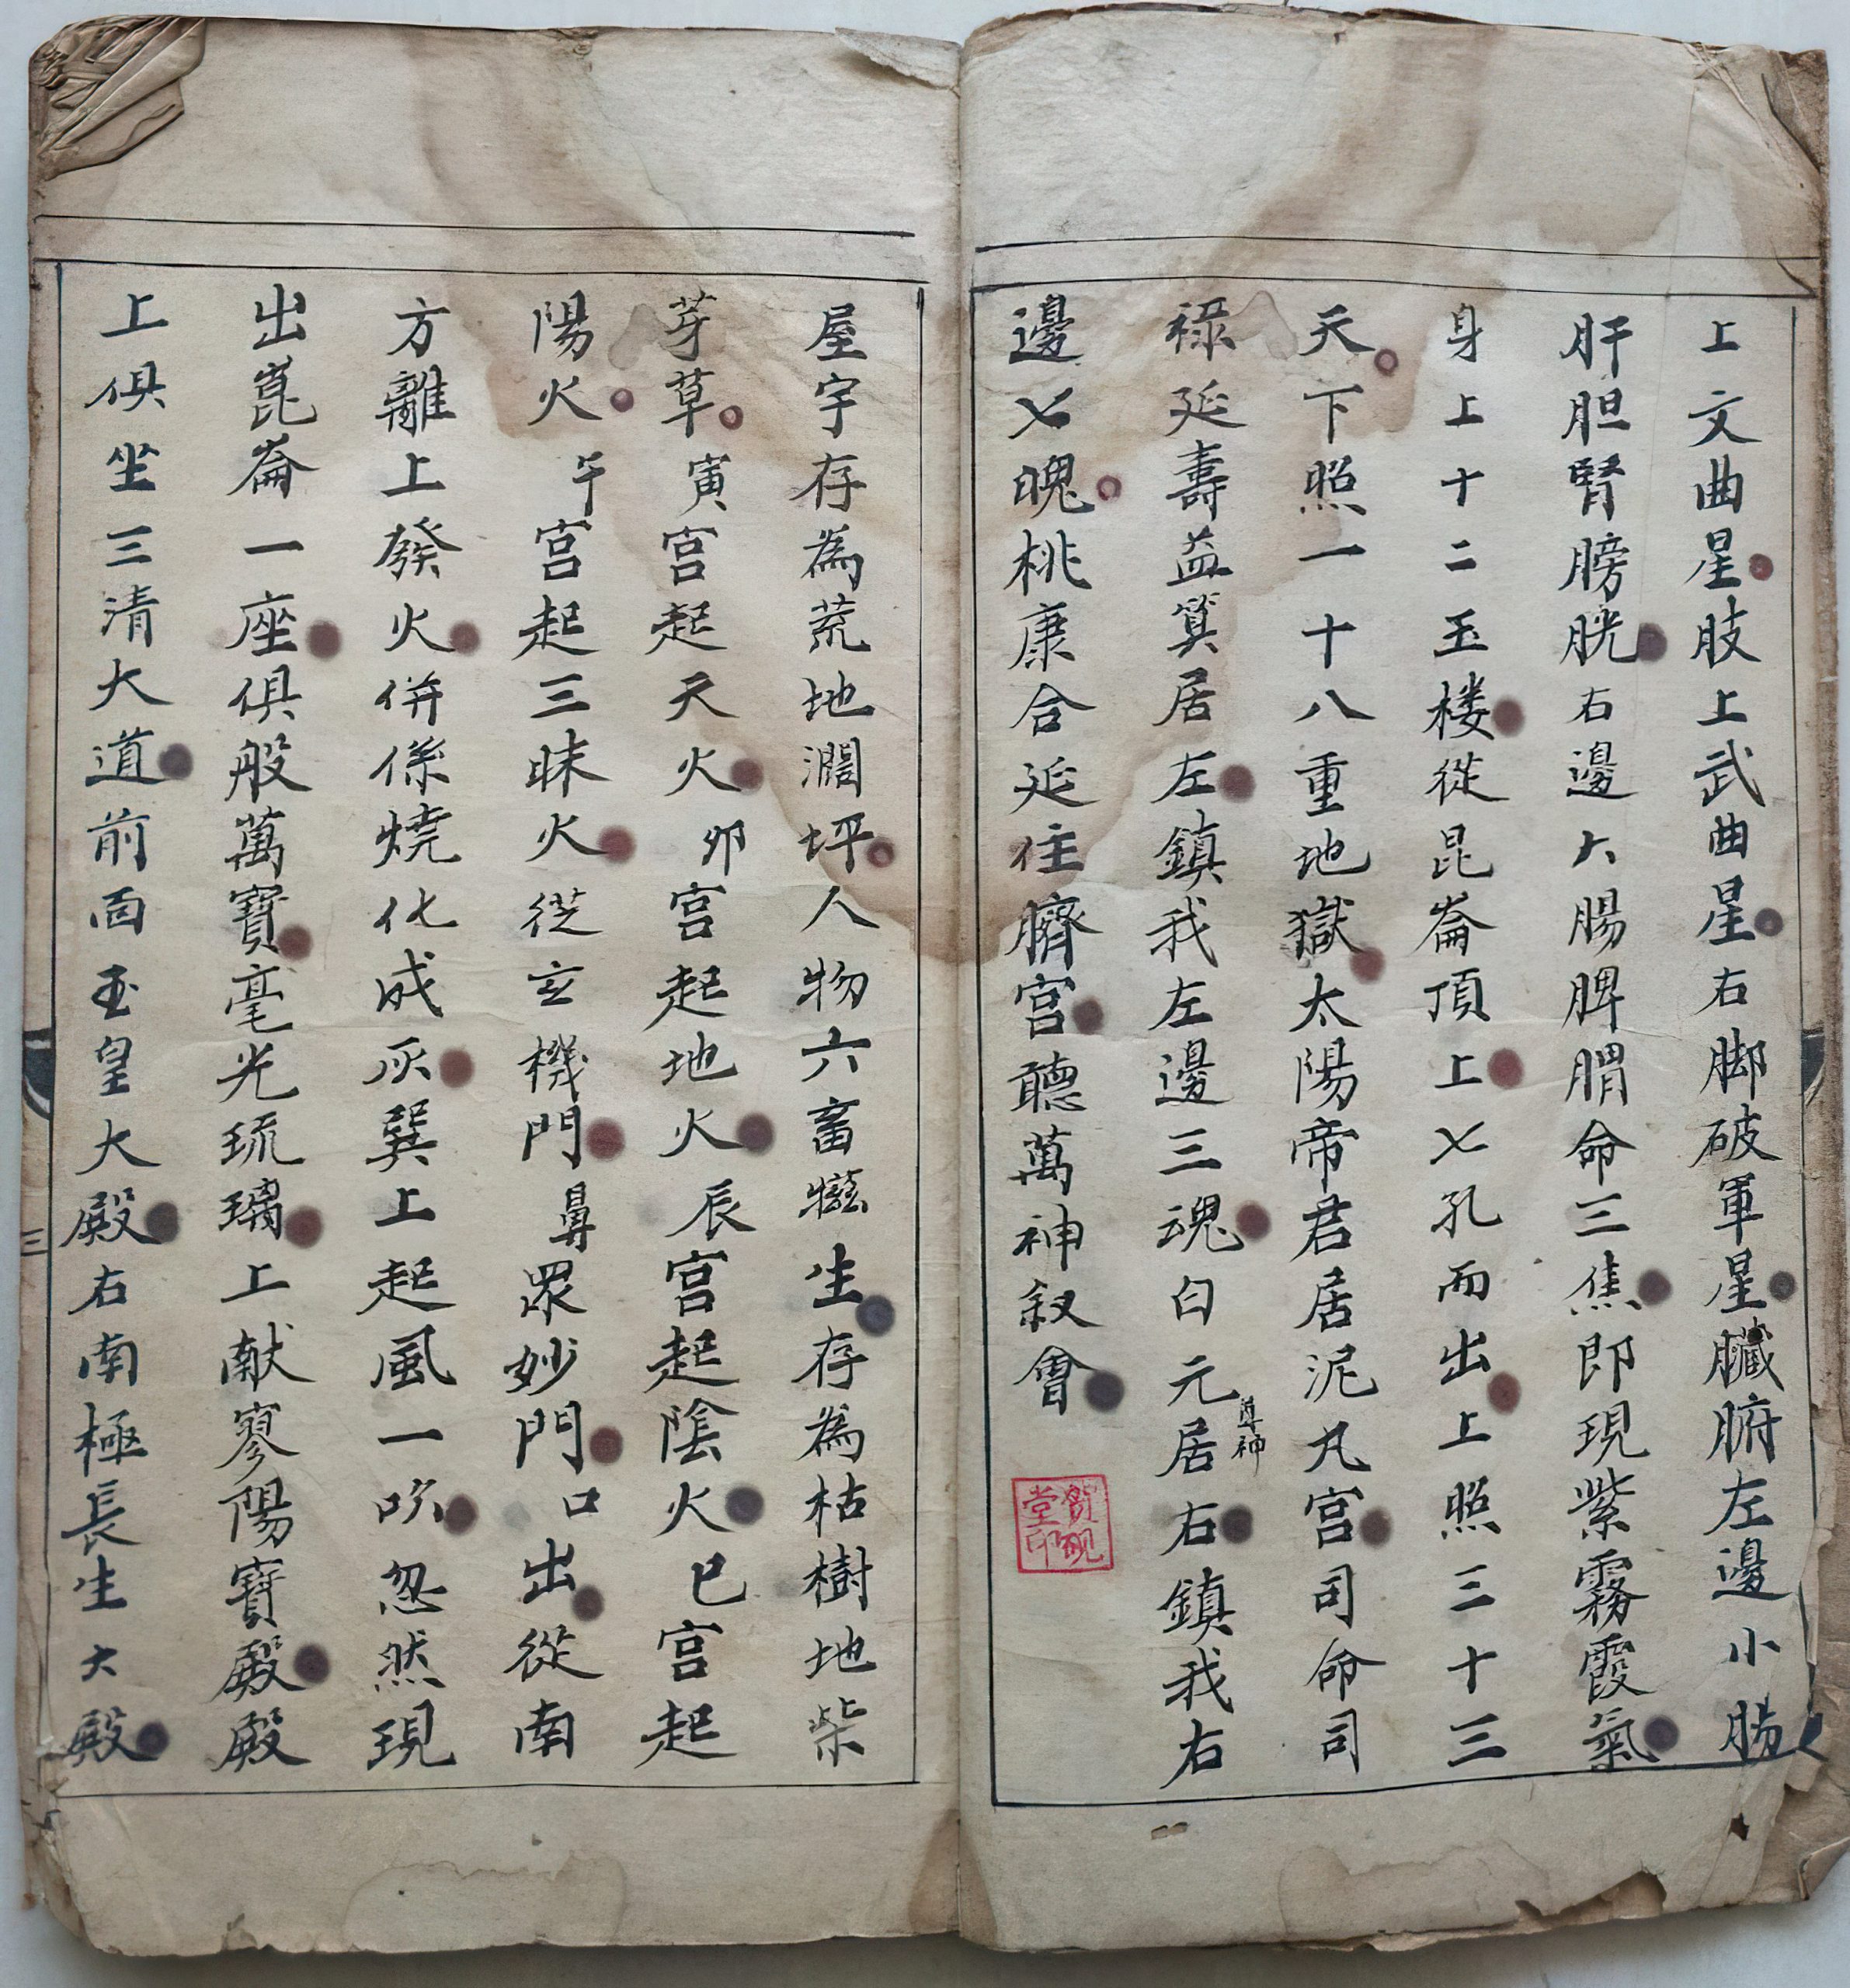 上文曲星肢上武曲星右脚破軍星臟腑左邊小腸
肝胆腎膀胱右邊大腸脾胃命三焦即現紫霧霞氣
身上十二玉楼從昆崙頂上七孔而出上照三十三
天下照一十八重地獄太陽帝君居泥丸宮司命司
禄延壽益算居左鎮我左邊三魂白元居右鎮我右
尊神
邊七魄桃康合延住臍宮聽萬神叙會
堂印
屋宇存為荒地濶坪人物六畜生存為枯樹地柴
芽草寅宮起天火卯宮起地火辰宮起陰火巳宮起
陽火午宮起三昧火從玄機門鼻眾妙門口出從南
方離上發火併係燒化成灰巽上起風一吹忽然現
出崑崙一座俱般萬寶毫光琉璃上献寥陽寶殿殿
上俱坐三清大道前面玉皇大殿右南極長生大殿
三